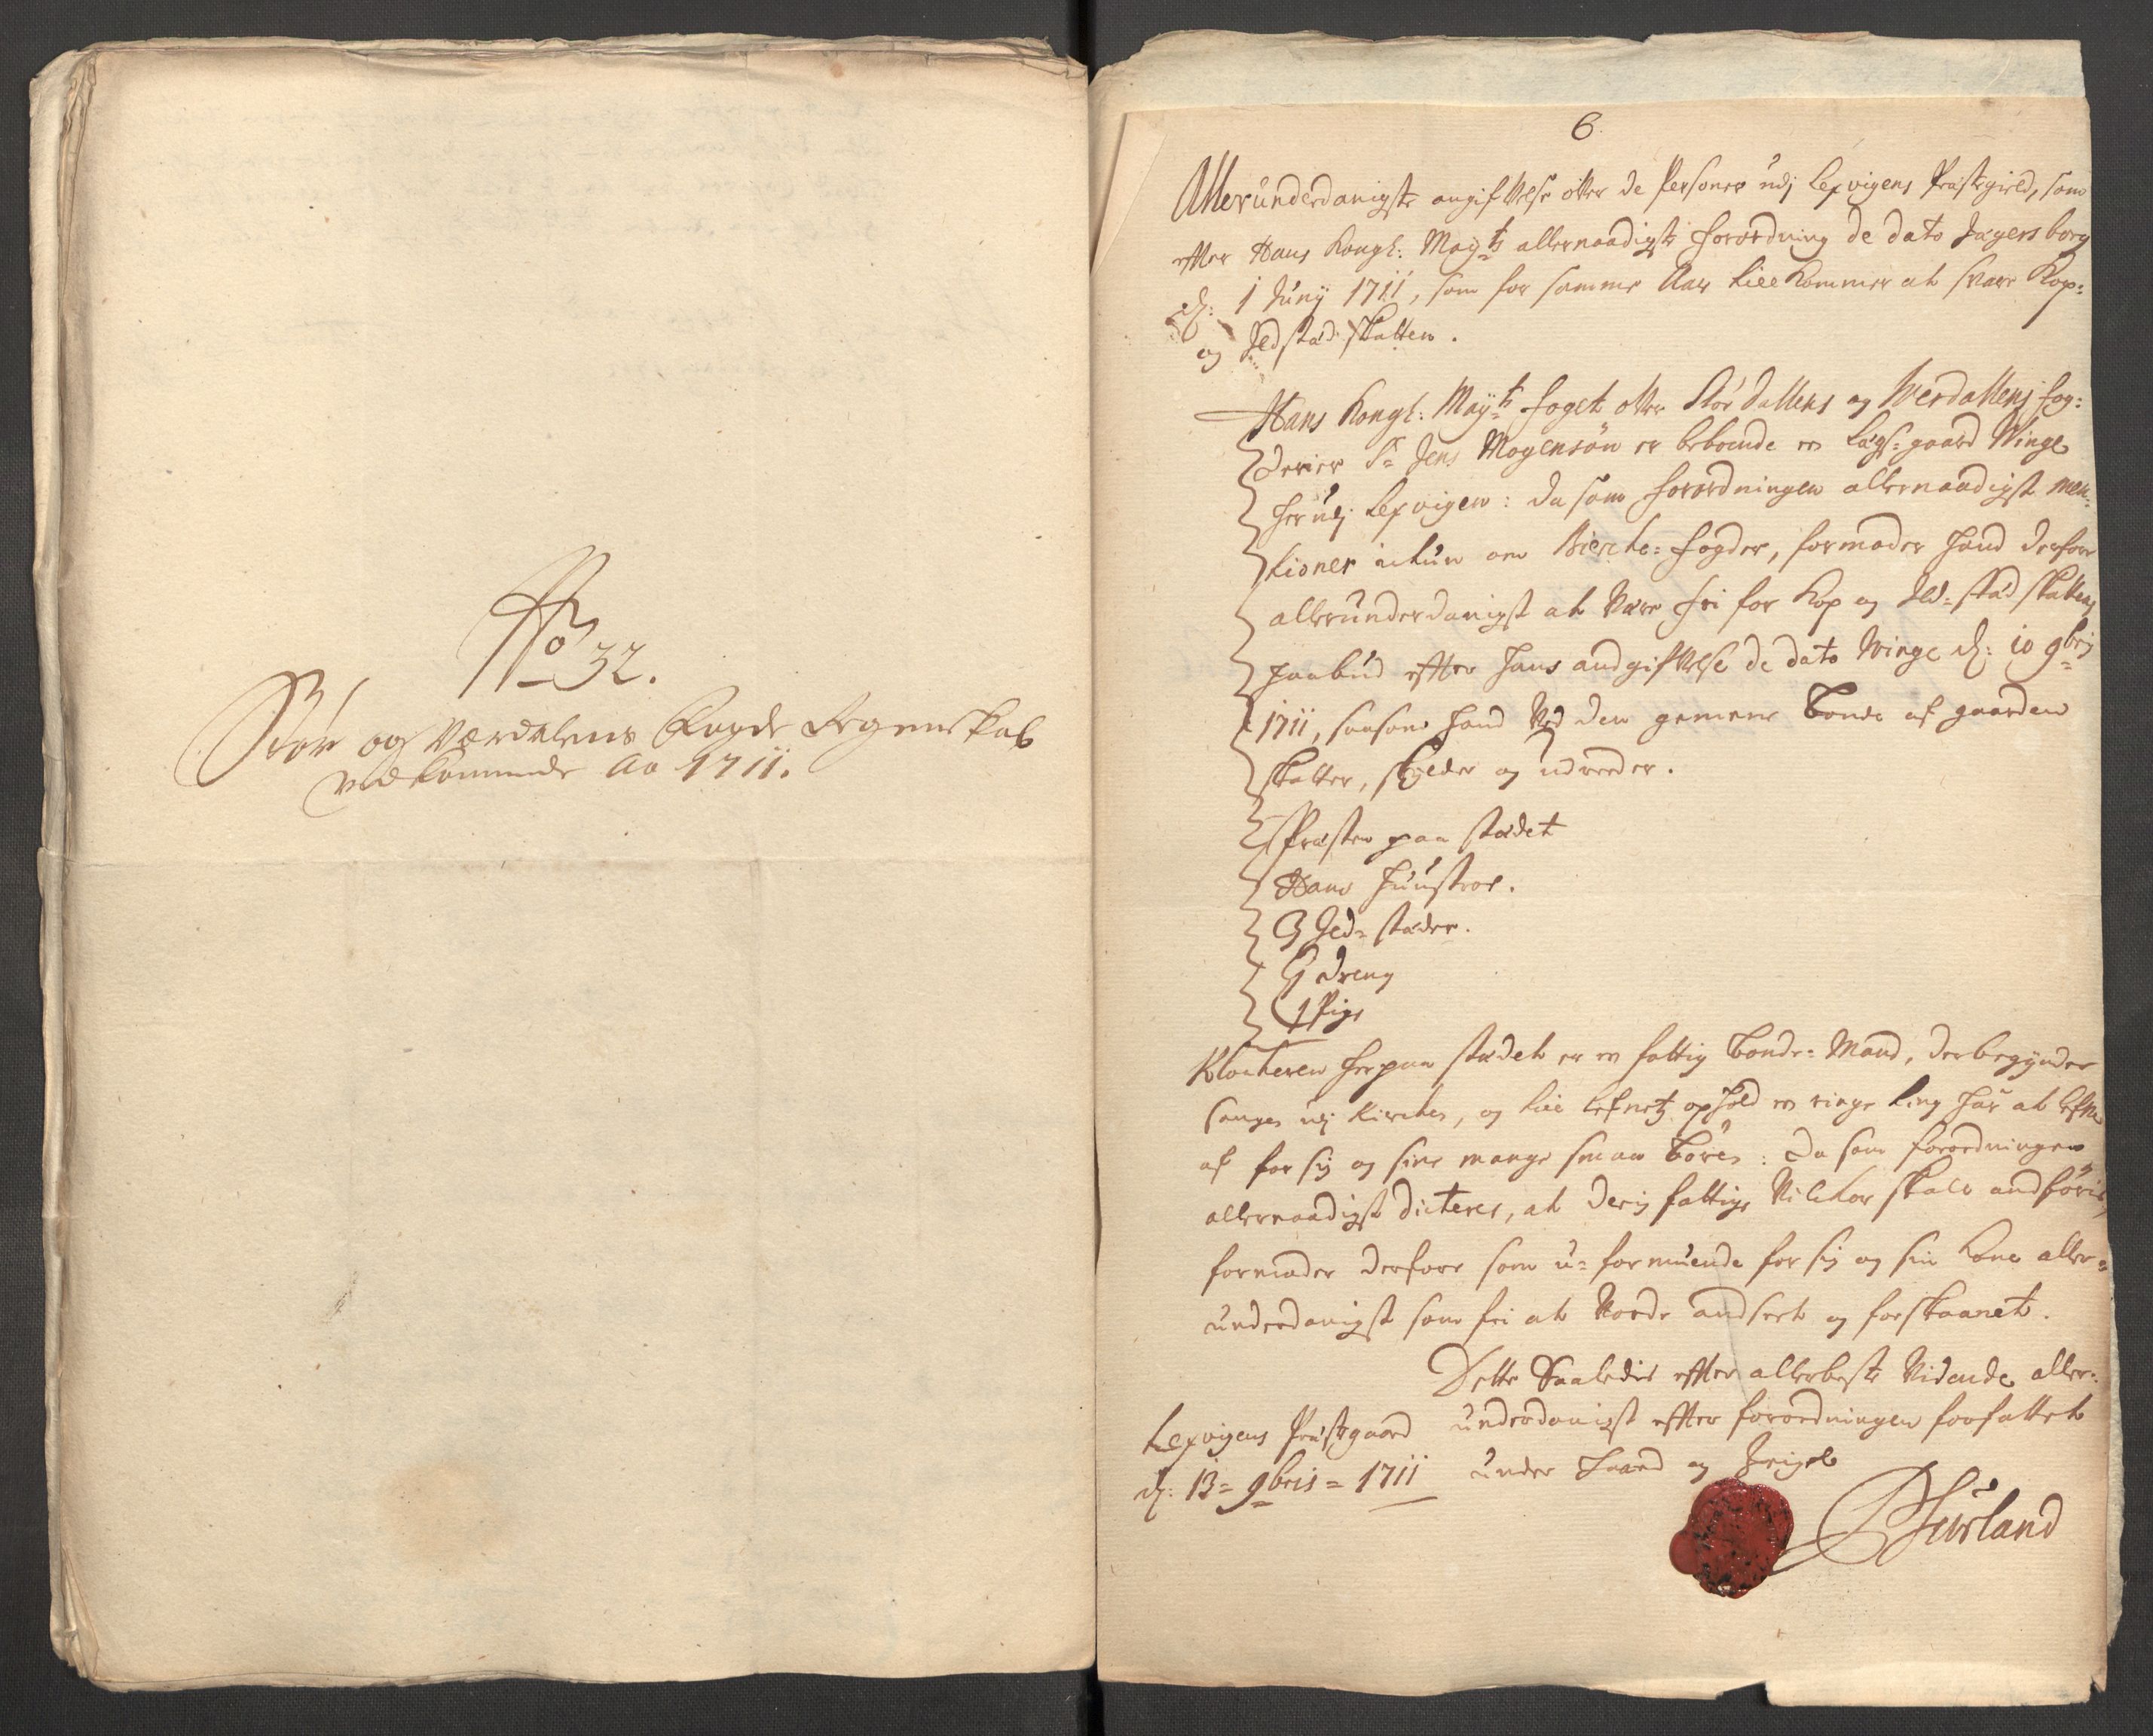 No 32.
Stør og Værdalens Fogde Regenskab
vedkommende Ao 1711.
6.
Allerunderdanigste angifvelse ofver de Personer udj Lexvigens Præstegield, som
efter Hans Kongl: Mayts allernaadigste forordning de dato Jægersborg
d: 1 Juny 1711, som for samme Aar till kommer at svare Kop:
og Jldstæd skatten.
Hans Kongl: Mayts foget ofver Stør dallens og Werdallens fog:
derier Sr Jens Mogensøn er beboende en gaard Winge
her udj Lexvigen: da som forordningen allernaadigst men:
tioner ickun om Bircke-fogder, formoder hand derfor
allerunderdanigst at være fri for Kop og Jld-stæd skattens
paabud efter hans andgifvelse de dato Winge d: 10 9brj
1711, saasom hand ved den gemene bonde af gaarden
skatter, skylder og udreeder.
Præsten paa stædet
Hans huustroe.
3 Jld-stæder.
1 dreng
1 Pige
Klockeren her paa stædet er en fattig bonde-Mand, der begynder
sangen udj Kircken, og till lifnetz ophold en ringe ting har at lefve
af for sig og sine mange smaa børn: da som forordningen
allernaadigst dicterer, at deris fattige vilckor skall andføris,
formoder derfore som u-formuende for sig og sin Kone aller-
underdanigst som fri at vorde andseet og forskaanet.
Dette Saaledis efter allerbeste vidende aller-
underdanigst efter forordningen forfattet
under haand og Zeigel
Lexvigens Præstegaard
d: 13= 9bris = 1711
Hersland